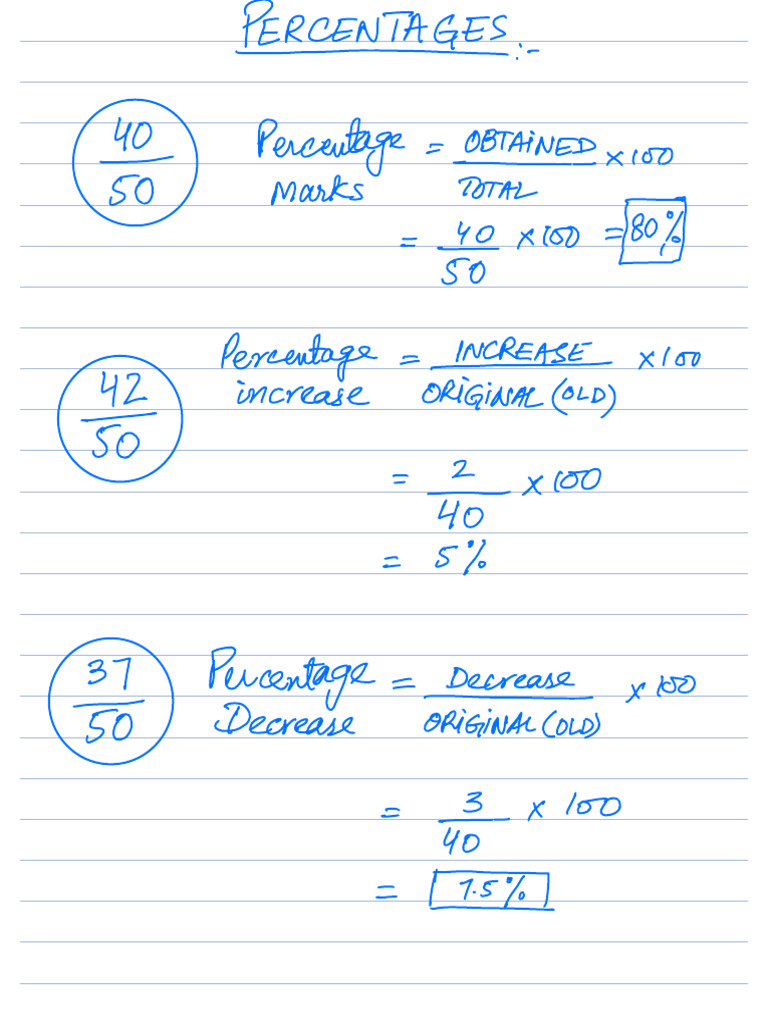 PERCENTAGES:-
40/50
Percentage Marks = OBTAINED/TOTAL × 100
= 40/50 × 100 = 80%
42/50
Percentage increase = INCREASE/ORIGINAL (OLD) × 100
= 2/40 × 100
= 5%
37/50
Percentage Decrease = Decrease/ORIGINAL (OLD) × 100
= 3/40 × 100
= 7.5%